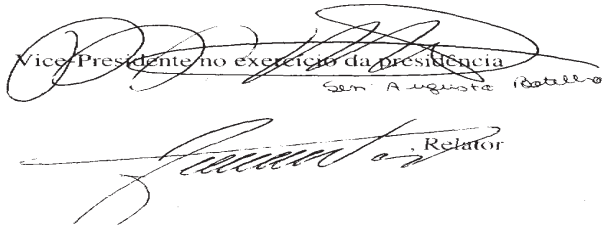 Vice-Presidente no exercício da presidência
Sen. Augusto Botelho
, Relator